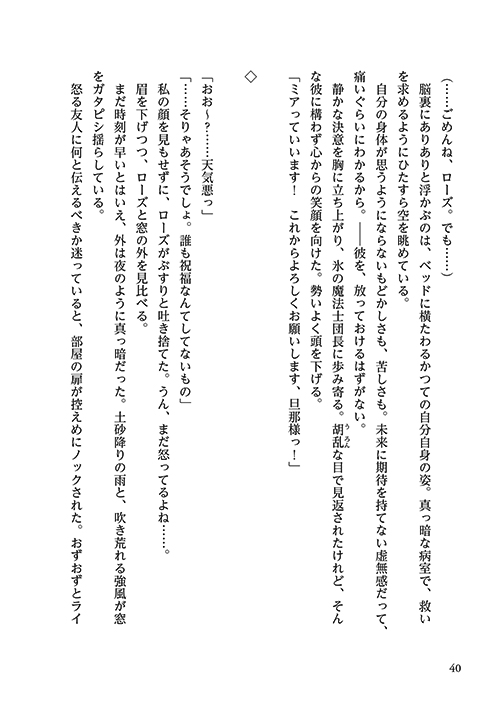 （……ごめんね、ローズ。でも……）
　脳裏にありありと浮かぶのは、ベッドに横たわるかつての自分自身の姿。真っ暗な病室で、救い
を求めるようにひたすら空を眺めている。
　自分の身体が思うようにならないもどかしさも、苦しさも。未来に期待を持てない虚無感だって、
痛いぐらいにわかるから。――彼を、放っておけるはずがない。
　静かな決意を胸に立ち上がり、氷の魔法士団長に歩み寄る。胡乱うろんな目で見返されたけれど、そん
な彼に構わず心からの笑顔を向けた。勢いよく頭を下げる。
「ミアっていいます！　これからよろしくお願いします、旦那様っ！」
◇
「おお～？……天気悪っ」
「……そりゃあそうでしょ。誰も祝福なんてしてないもの」
　私の顔を見もせずに、ローズがぶすりと吐き捨てた。うん、まだ怒ってるよね……。
　眉を下げつつ、ローズと窓の外を見比べる。
　まだ時刻が早いとはいえ、外は夜のように真っ暗だった。土砂降りの雨と、吹き荒れる強風が窓
をガタピシ揺らしている。
　怒る友人に何と伝えるべきか迷っていると、部屋の扉が控えめにノックされた。おずおずとライ
40